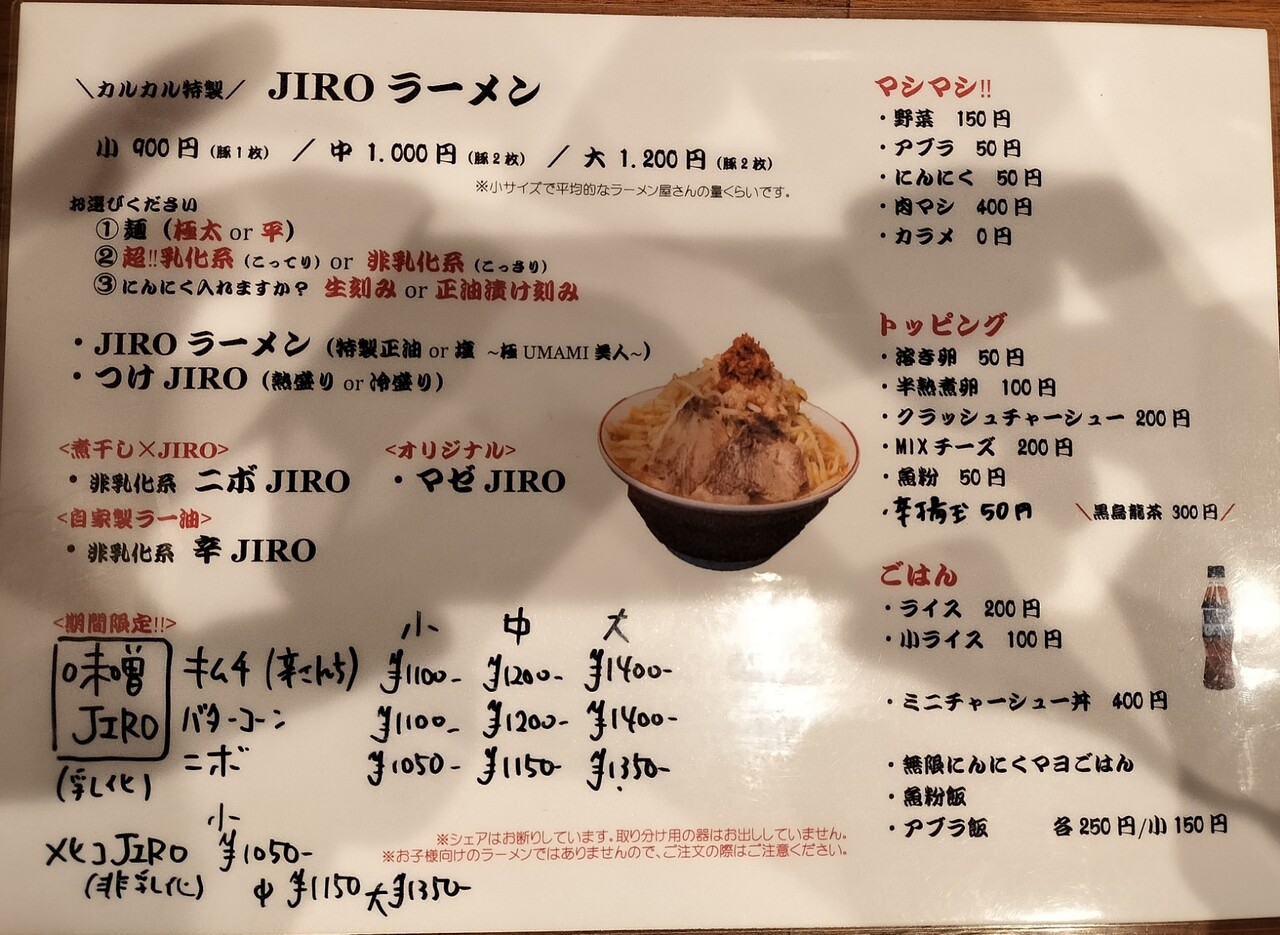 ＼カルカル特製／ JIRO ラーメン
小 900円（豚1枚） ／ 中 1.000円（豚2枚） ／ 大 1.200円（豚2枚）
※小サイズで平均的なラーメン屋さんの量くらいです。
お選びください
①麺（極太 or 平）
②超!!乳化系（こってり）or 非乳化系（こっさり）
③にんにく入れますか？ 生刻み or 正油漬け刻み
・JIRO ラーメン（特製正油 or 塩 ~極 UMAMI 美人~）
・つけ JIRO（熱盛り or 冷盛り）
<煮干し×JIRO>
・非乳化系 ニボ JIRO
<オリジナル>
・マゼ JIRO
<自家製ラー油>
・非乳化系 辛 JIRO
<期間限定!!>
小 中 大
味噌 JIRO
(乳化)
キムチ (辛さんち) ¥1100- ¥1200- ¥1400-
バターコーン ¥1100- ¥1200- ¥1400-
ニボ ¥1050- ¥1150- ¥1350-
JIRO 小 ¥1050-
(非乳化) 中 ¥1150 大 ¥1350-
※シェアはお断りしています。取り分け用の器はお出ししていません。
※お子様向けのラーメンではありませんので、ご注文の際はご注意ください。
マシマシ!!
・野菜 150円
・アブラ 50円
・にんにく 50円
・肉マシ 400円
・カラメ 0円
トッピング
・溶き卵 50円
・半熟煮卵 100円
・クラッシュチャーシュー 200円
・MIXチーズ 200円
・魚粉 50円
・辛揚玉 50円
＼黒烏龍茶 300円／
ごはん
・ライス 200円
・小ライス 100円
・ミニチャーシュー丼 400円
・無限にんにくマヨごはん
・魚粉飯
・アブラ飯 各250円/小150円